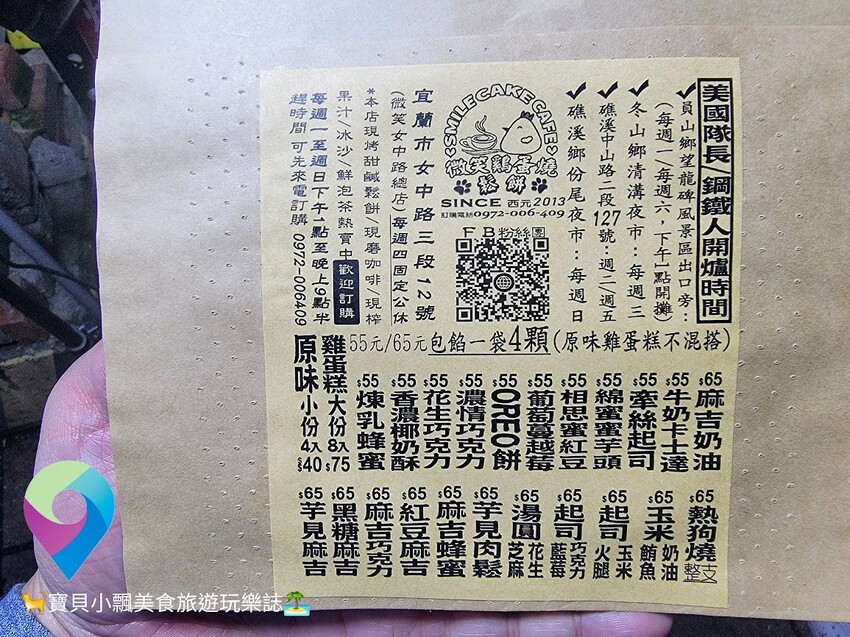 美國隊長/鋼鐵人開爐時間
✔員山鄉望龍碑風景區出口旁：
（每週一/每週六，下午1點開攤）
✔冬山鄉清溝夜市：每週三
✔礁溪中山路二段127號：週二/週五
✔礁溪鄉份尾夜市：每週日
SMILE CAKE CAFE
微笑雞蛋燒
鬆餅
SINCE 西元2013
訂購電話0972-006-409
FB粉絲團
宜蘭市女中路三段12號
(微笑女中路總店)每週四固定公休
*本店現烤甜鹹鬆餅/現磨咖啡/現榨
果汁/冰沙/鮮泡茶熱賣中 歡迎訂購
每週一至週日下午1點至晚上9點半
趕時間 可先來電訂購 0972-006409
55元/65元包餡一袋4顆(原味雞蛋糕不混搭)
$65麻吉奶油
$55牛奶卡士達
$55牽絲起司
$55綿蜜蜜芋頭
$55相思蜜紅豆
$55葡萄蔓越莓
$55OREO餅
$55濃情巧克力
$55花生巧克力
$55香濃椰奶酥
$55煉乳蜂蜜
雞蛋糕大份8入$75
原味小份4入$40
$65熱狗燒整支
$65玉米奶油鮪魚
$65起司玉米火腿
$65起司巧克力藍莓
$65湯圓花生芝麻
$65芋見肉鬆
$65麻吉蜂蜜
$65紅豆麻吉
$65麻吉巧克力
$65黑糖麻吉
$65芋見麻吉
寶貝小飄美食旅遊玩樂誌